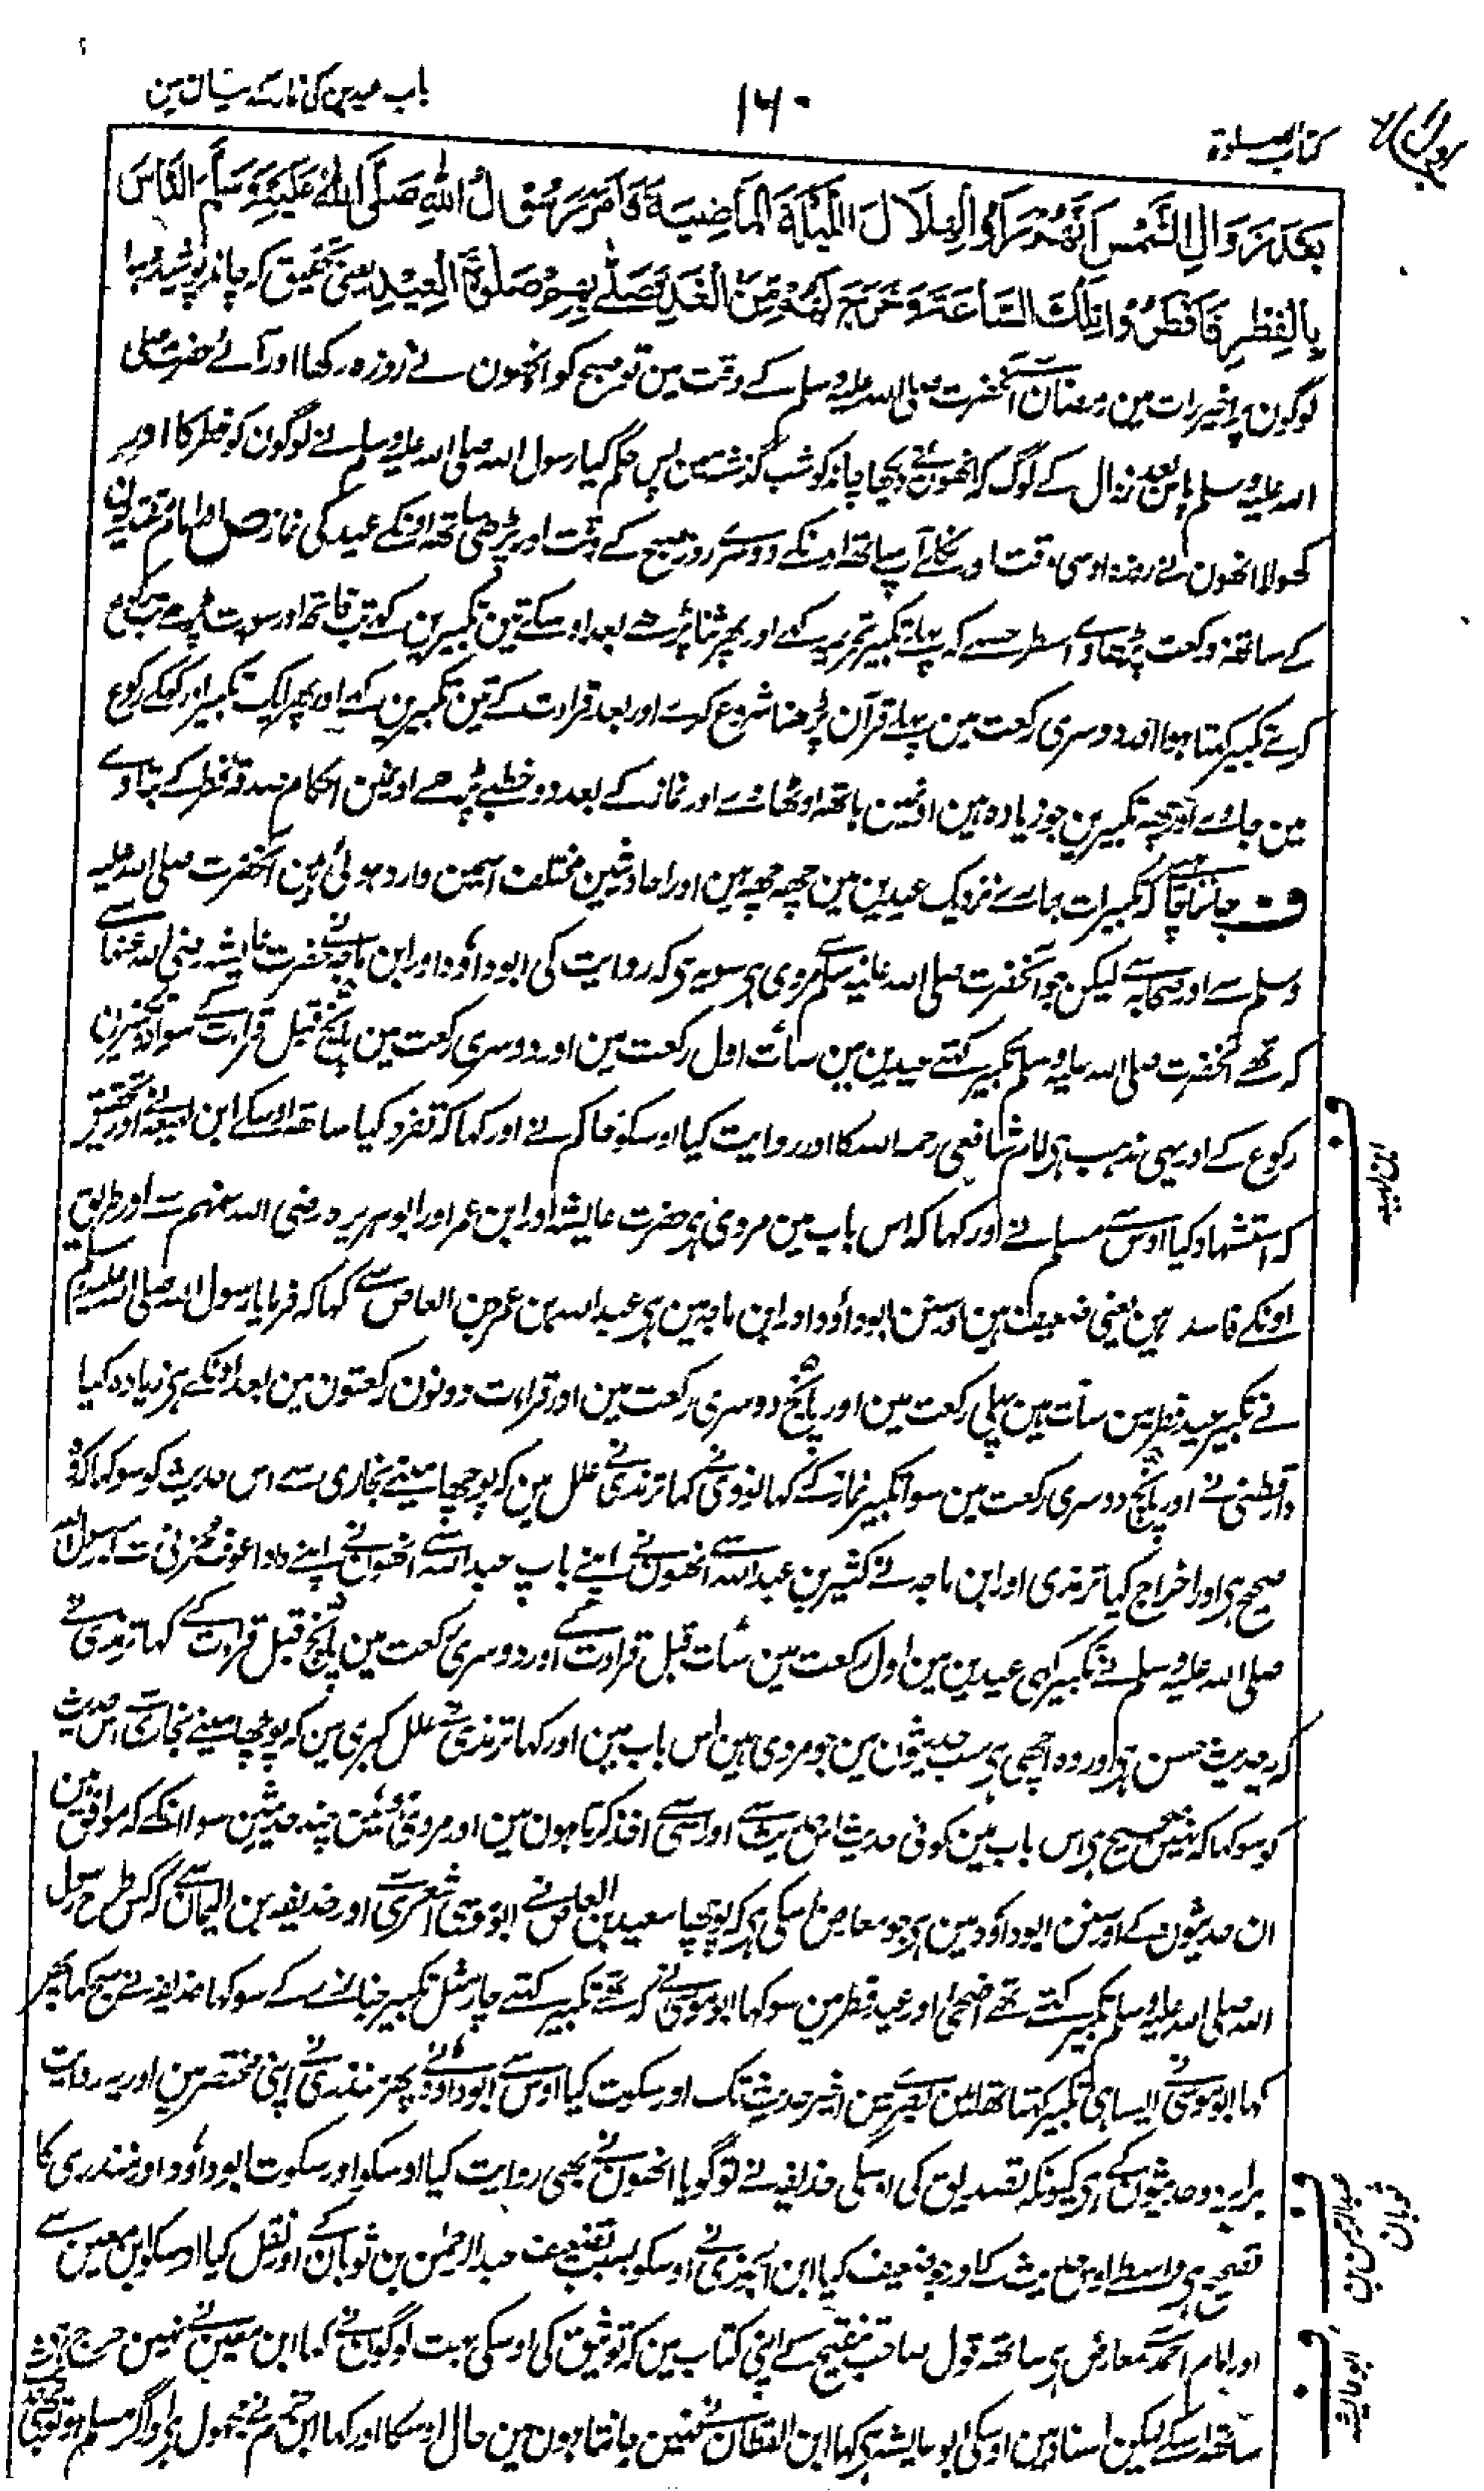 باب عیدین کی نماز کے بیان مین
۱۶۰
کتاب الصلوة
بَعْدَ زَوَالِ الشَّمْسِ اَنَّهُمْ رَاَوُا الْهِلَالَ اللَّيْلَةَ الْمَاضِيَةَ فَاَمَرَ رَسُوْلُ اللهِ صَلَّى اللهُ عَلَيْهِ وَسَلَّمَ النَّاسَ
بِالْفِطْرِ فَاَفْطَرُوْا تِلْكَ السَّاعَةَ وَخَرَجَ بِهِمْ مِنَ الْغَدِ فَصَلّٰى بِهِمْ صَلٰوةَ الْعِيْدِ یعنی تحقیق کہ چاند پوشیدہ رہا
لوگون پر اخیر رات مین رمضان کے آنحضرت صلی اللہ علیہ وسلم کے وقت مین تو صبح کو انھون نے روزہ رکھا اور آئے حضرت صلی
اللہ علیہ وسلم پاس بعد زوال کے لوگ کہ انھون نے دیکھا چاند کو شب گذشتہ مین پس حکم کیا رسول اللہ صلی اللہ علیہ وسلم نے لوگون کو فطر کا اور
کھولا انھون نے روزہ اوسی وقت اور نکلے آپ ساتھ اونکے دوسرے روز صبح کے وقت اور پڑھی ساتھ اونکے عید کی نماز ص اور امام مقتدیون
کے ساتھ دو رکعت پڑھاوے اسطرح سے کہ پہلے تکبیر تحریمہ کہے اور پھر ثنا پڑھے بعد اوسکے تین تکبیرین کہے تب فاتحہ اور سورت پڑھے تب رکوع
کرے تکبیر کہتا ہوا اور دوسری رکعت مین پہلے قرآن پڑھنا شروع کرے اور بعد قراءت کے تین تکبیرین کہے اور پھر ایک تکبیر اور کہکے رکوع
مین جاوے اور چھہ تکبیرین جو زیادہ ہین اونمین ہاتھ اوٹھاوے اور نماز کے بعد دو خطبے پڑھے اونمین احکام صدقہ فطر کے بتاوے
ف جاننا چاہئے کہ تکبیرات ہمارے نزدیک عیدین مین چھہ چھہ ہین اور احادیثین مختلف اسمین وارد ہوئی ہین آنحضرت صلی اللہ علیہ
وسلم سے اور صحابہ سے لیکن جو آنحضرت صلی اللہ علیہ وسلم سے مروی ہی سو یہ ہی کہ روایت کی ابو داؤد اور ابن ماجہ نے حضرت عایشہ رضی اللہ عنہا سے
کہ تھے آنحضرت صلی اللہ علیہ وسلم تکبیر کہتے عیدین مین سات اول رکعت مین اور دوسری رکعت مین پانچ قبل قراءت کے سوا دو تکبیرون
رکوع کے اور یہی مذہب ہی امام شافعی رحمہ اللہ کا اور روایت کیا اوسکو حاکم نے اور کہا کہ تفرد کیا ساتھ اوسکے ابن لہیعہ نے اور تحقیق
کہ استشہاد کیا اوس سے مسلم نے اور کہا کہ اس باب مین مروی ہی حضرت عایشہ اور ابن عمر اور ابو ہریرہ رضی اللہ عنہم سے اور طریق
اونکے فاسد ہین یعنی ضعیف ہین اور سنن ابو داؤد اور ابن ماجہ مین ہی عبد اللہ بن عمرو بن العاص سے کہا کہ فرمایا رسول اللہ صلی اللہ علیہ وسلم
نے تکبیر عید فطر مین سات ہین پہلی رکعت مین اور پانچ دوسری رکعت مین اور قراءت دونون رکعتون مین بعد اونکے ہی زیادہ کیا
دارقطنی نے اور پانچ دوسری رکعت مین سوا تکبیر نماز کے کہا نووی نے کہا ترمذی نے علل مین کہ پوچھا مینے بخاری سے اس حدیث کو سو کہا کہ وہ
صحیح ہی اور اخراج کیا ترمذی اور ابن ماجہ نے کثیر بن عبد اللہ سے انھون نے اپنے باپ عبد اللہ سے انھون نے اپنے دادا عوف مزنی سے کہ رسول اللہ
صلی اللہ علیہ وسلم نے تکبیر کہی عیدین مین اول رکعت مین سات قبل قراءت کے اور دوسری رکعت مین پانچ قبل قراءت کے کہا ترمذی نے
کہ یہ حدیث حسن ہی اور وہ اچھی ہی سب حدیثون مین جو مروی ہین اس باب مین اور کہا ترمذی نے علل کبری مین کہ پوچھا مینے بخاری سے اس حدیث
کو سو کہا کہ نہین صحیح ہی اس باب مین کوئی حدیث اس حدیث سے اور اسی سے اخذ کرتا ہون مین اور مروی ہین چند حدیثین سوا انکے کہ موافق ہین
ان حدیثون کے اور سنن ابو داؤد مین ہی جو معارض اسکی ہی کہ پوچھا سعید بن العاص نے ابو موسی اشعری سے اور حذیفہ بن الیمان سے کہ کس طرح رسول
اللہ صلی اللہ علیہ وسلم تکبیر کہتے تھے اضحیٰ اور عید فطر مین سو کہا ابو موسی نے کہ تھے تکبیر کہتے چار مثل تکبیر جنازے کے سو کہا حذیفہ نے سچ کہا پھر
کہا ابو موسی نے ایسا ہی تکبیر کہتا تھا مین بصرے مین اخیر حدیث تک اور سکوت کیا اوس سے ابو داؤد نے پھر منذری نے اپنی مختصر مین اور یہ روایت
برابر دو حدیثون کے ہی کیونکہ تصدیق کی اوسکی حذیفہ نے تو گویا انھون نے بھی روایت کیا اوسکو اور سکوت ابو داؤد اور منذری کا
تصحیح ہی واسطے اوس حدیث کے اور جو ضعیف کیا ابن الجوزی نے اوسکو بسبب تضعیف عبد الرحمٰن بن ثوبان کے اور نقل کیا اوسکو ابن معین سے
اور امام احمد سے معارض ہی ساتھ قول صاحب تنقیح کے اپنی کتاب مین کہ توثیق کی اوسکی بہت لوگون نے کہا ابن معین نے نہین حرج
ساتھ اسکے لیکن اسناد مین اوسکی ابو عایشہ ہی کہا ابن القطان نے نہین جانتا ہون مین حال اوسکا اور کہا ابن حزم نے مجہول ہی اور اگر مسلم ہو
عبد الرحمن بن ثوبان
ابو عایشہ